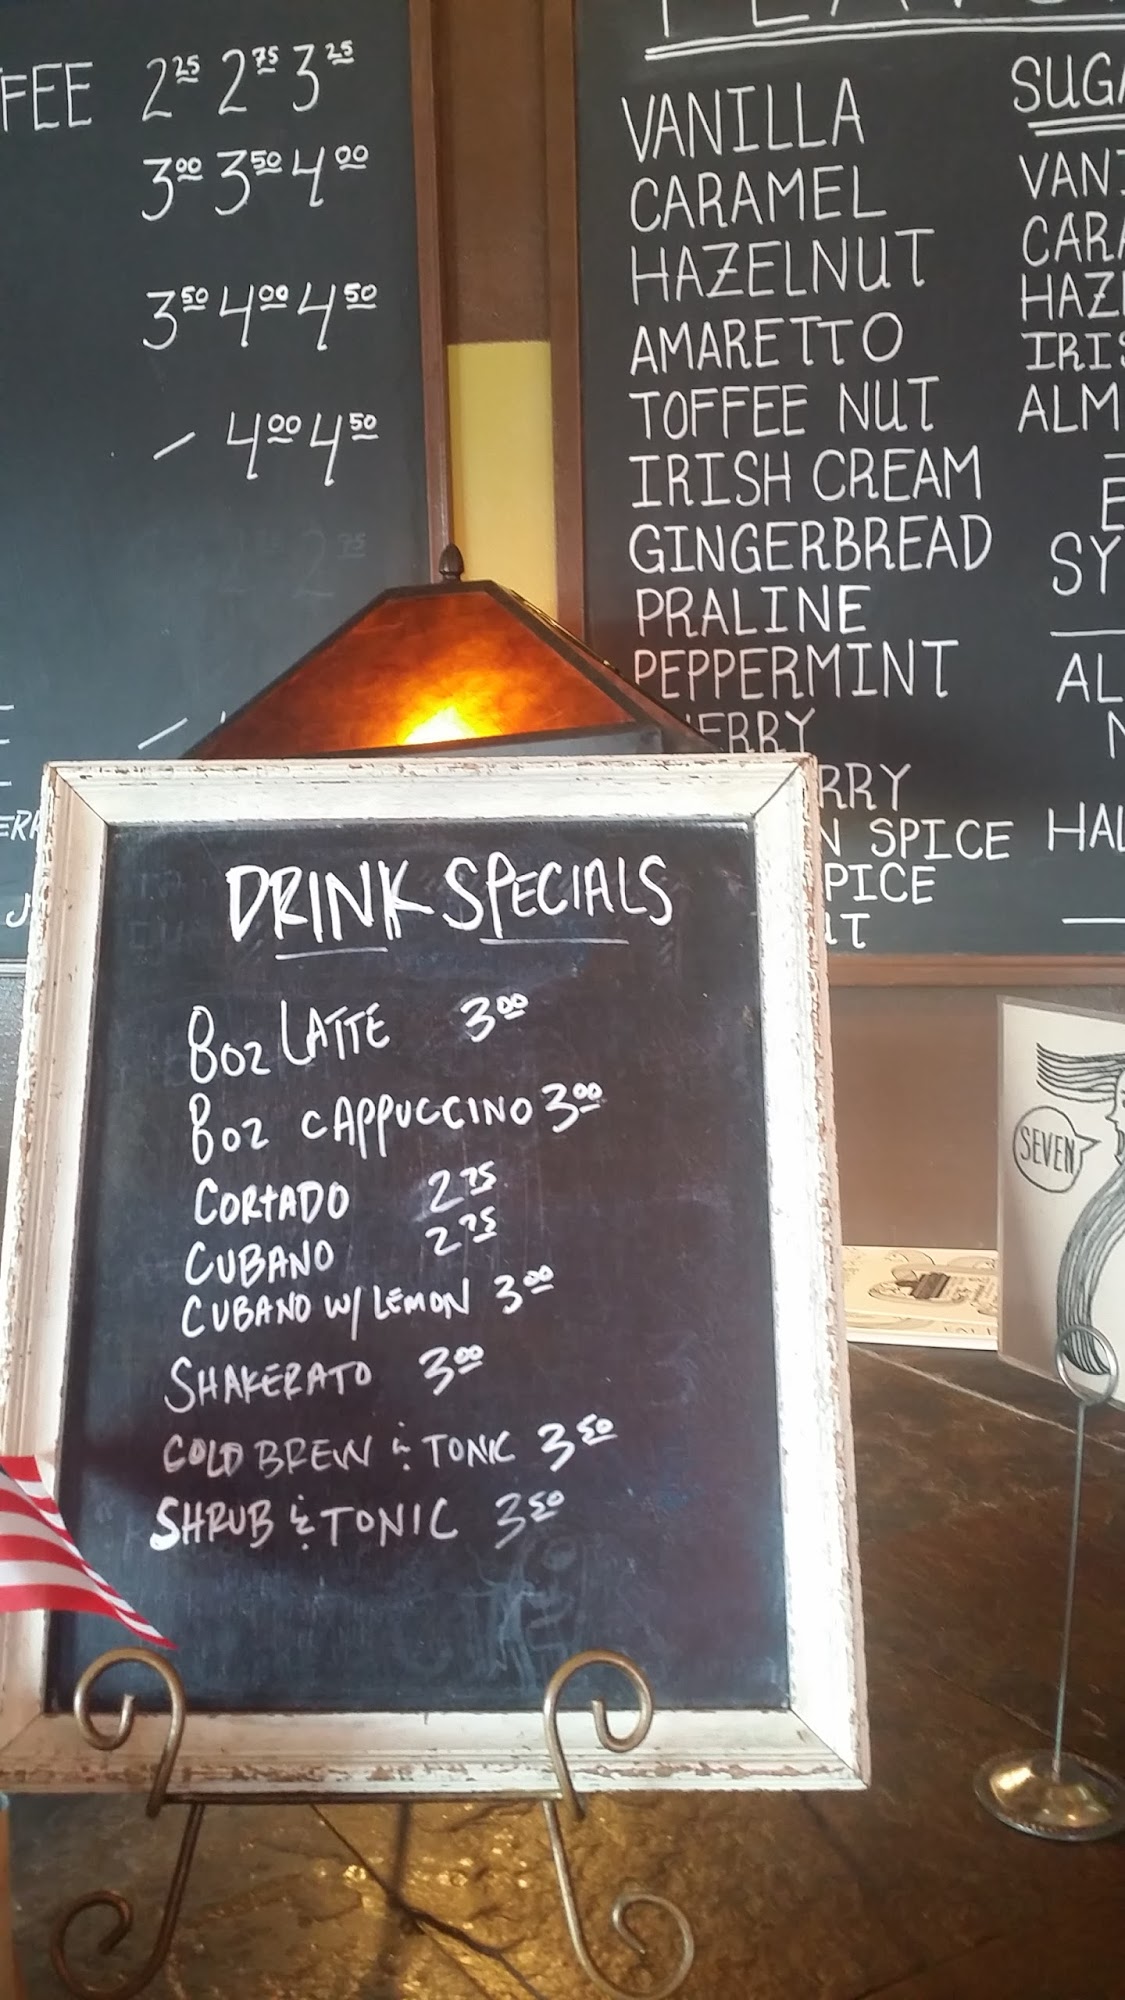 FEE 2.25 2.75 3.25
3.00 3.50 4.00
3.50 4.00 4.50
– 4.00 4.50
2.75
VANILLA
CARAMEL
HAZELNUT
AMARETTO
TOFFEE NUT
IRISH CREAM
GINGERBREAD
PRALINE
PEPPERMINT
ERRY
RRY
N SPICE
PICE
SUGA
VANI
CARA
HAZE
IRIS
ALM
E
SY
AL
N
HAL
DRINK SPECIALS
8oz LATTE 3.00
8oz CAPPUCCINO 3.00
CORTADO 2.75
CUBANO 2.75
CUBANO W/ LEMON 3.00
SHAKERATO 3.00
COLD BREW & TONIC 3.50
SHRUB & TONIC 3.50
SEVEN